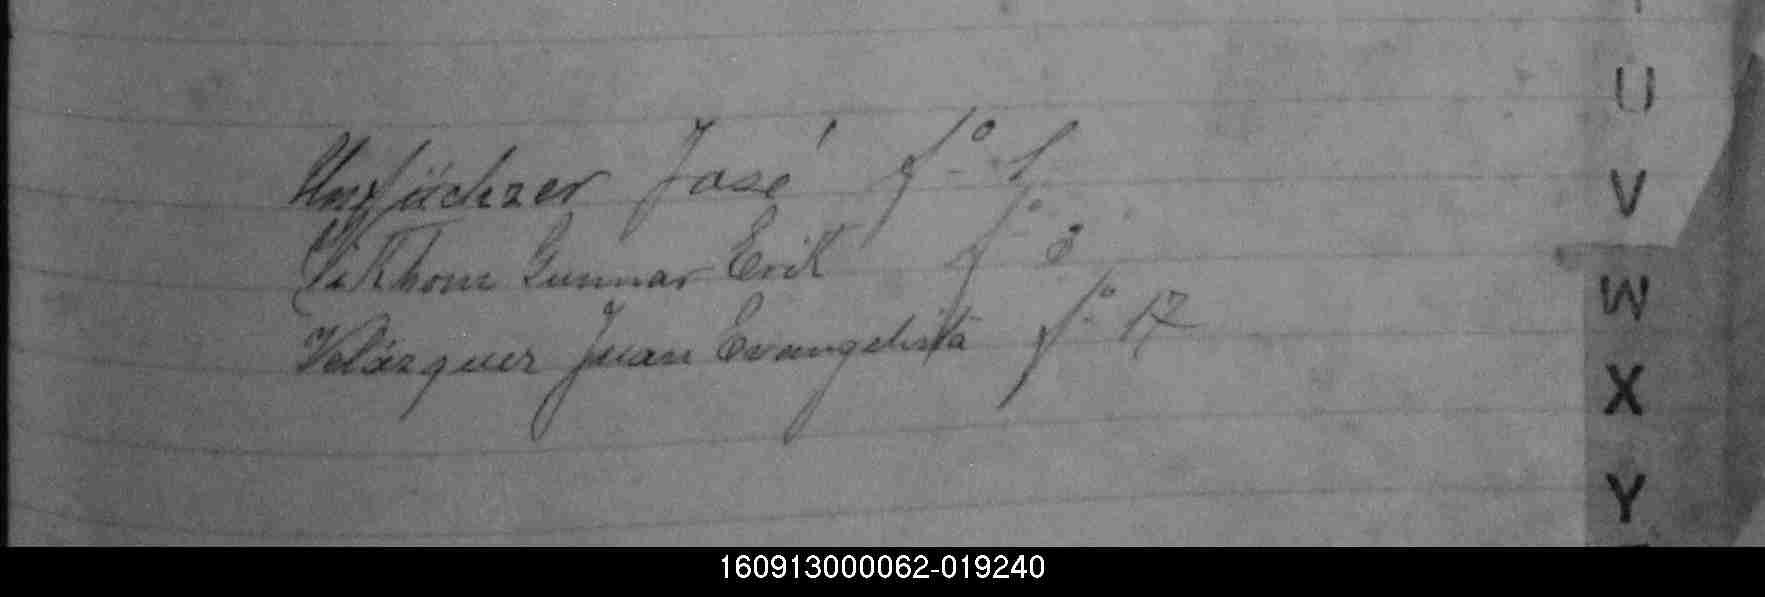 José fº 1
Vikhom Gunnar Erik fº 3
Velásquez Juan Evangelista fº 17
U
V
W
X
Y
160913000062-019240